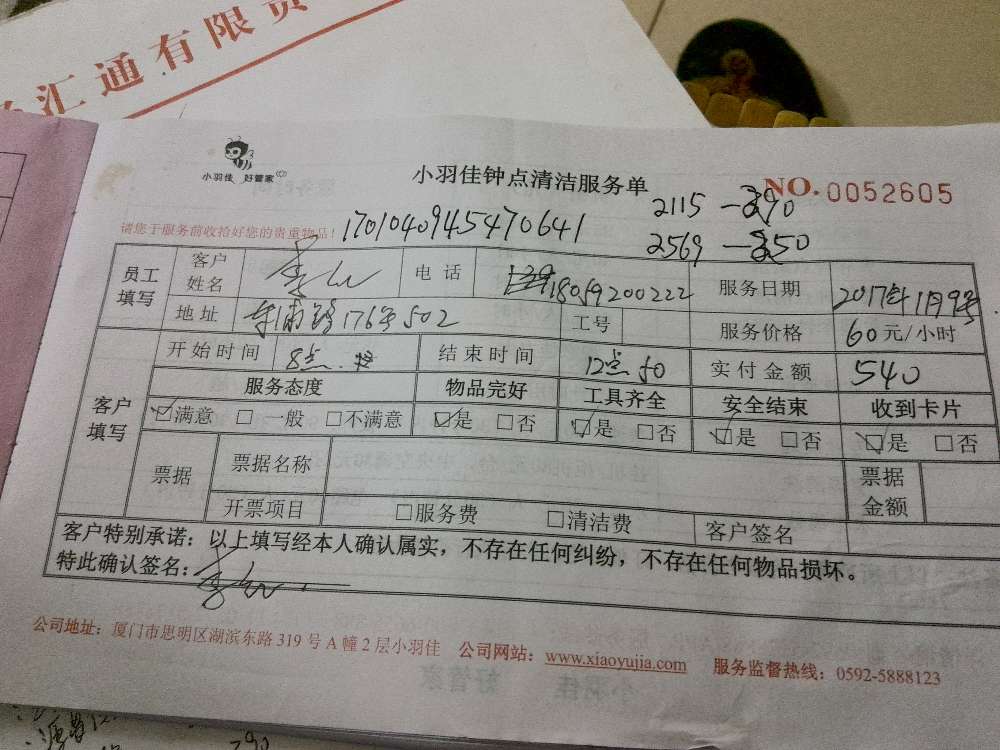 汇通有限责
小羽佳 好管家
小羽佳钟点清洁服务单
NO. 0052605
2115 — 290
2569 — 250
请您于服务前收拾好您的贵重物品!
170104094547 0641
员工填写 客户姓名 电话 18059200222 服务日期 2017年1月9号
地址 176号502 工号 服务价格 60元/小时
开始时间 8点 结束时间 12点50 实付金额 540
客户填写 服务态度 物品完好 工具齐全 安全结束 收到卡片
☑满意 □一般 □不满意 ☑是 □否 ☑是 □否 ☑是 □否 ☑是 □否
票据 票据名称 票据金额
开票项目 □服务费 □清洁费 客户签名
客户特别承诺：以上填写经本人确认属实，不存在任何纠纷，不存在任何物品损坏。
特此确认签名：
公司地址：厦门市思明区湖滨东路319号A幢2层小羽佳 公司网站：www.xiaoyujia.com 服务监督热线：0592-5888123
290